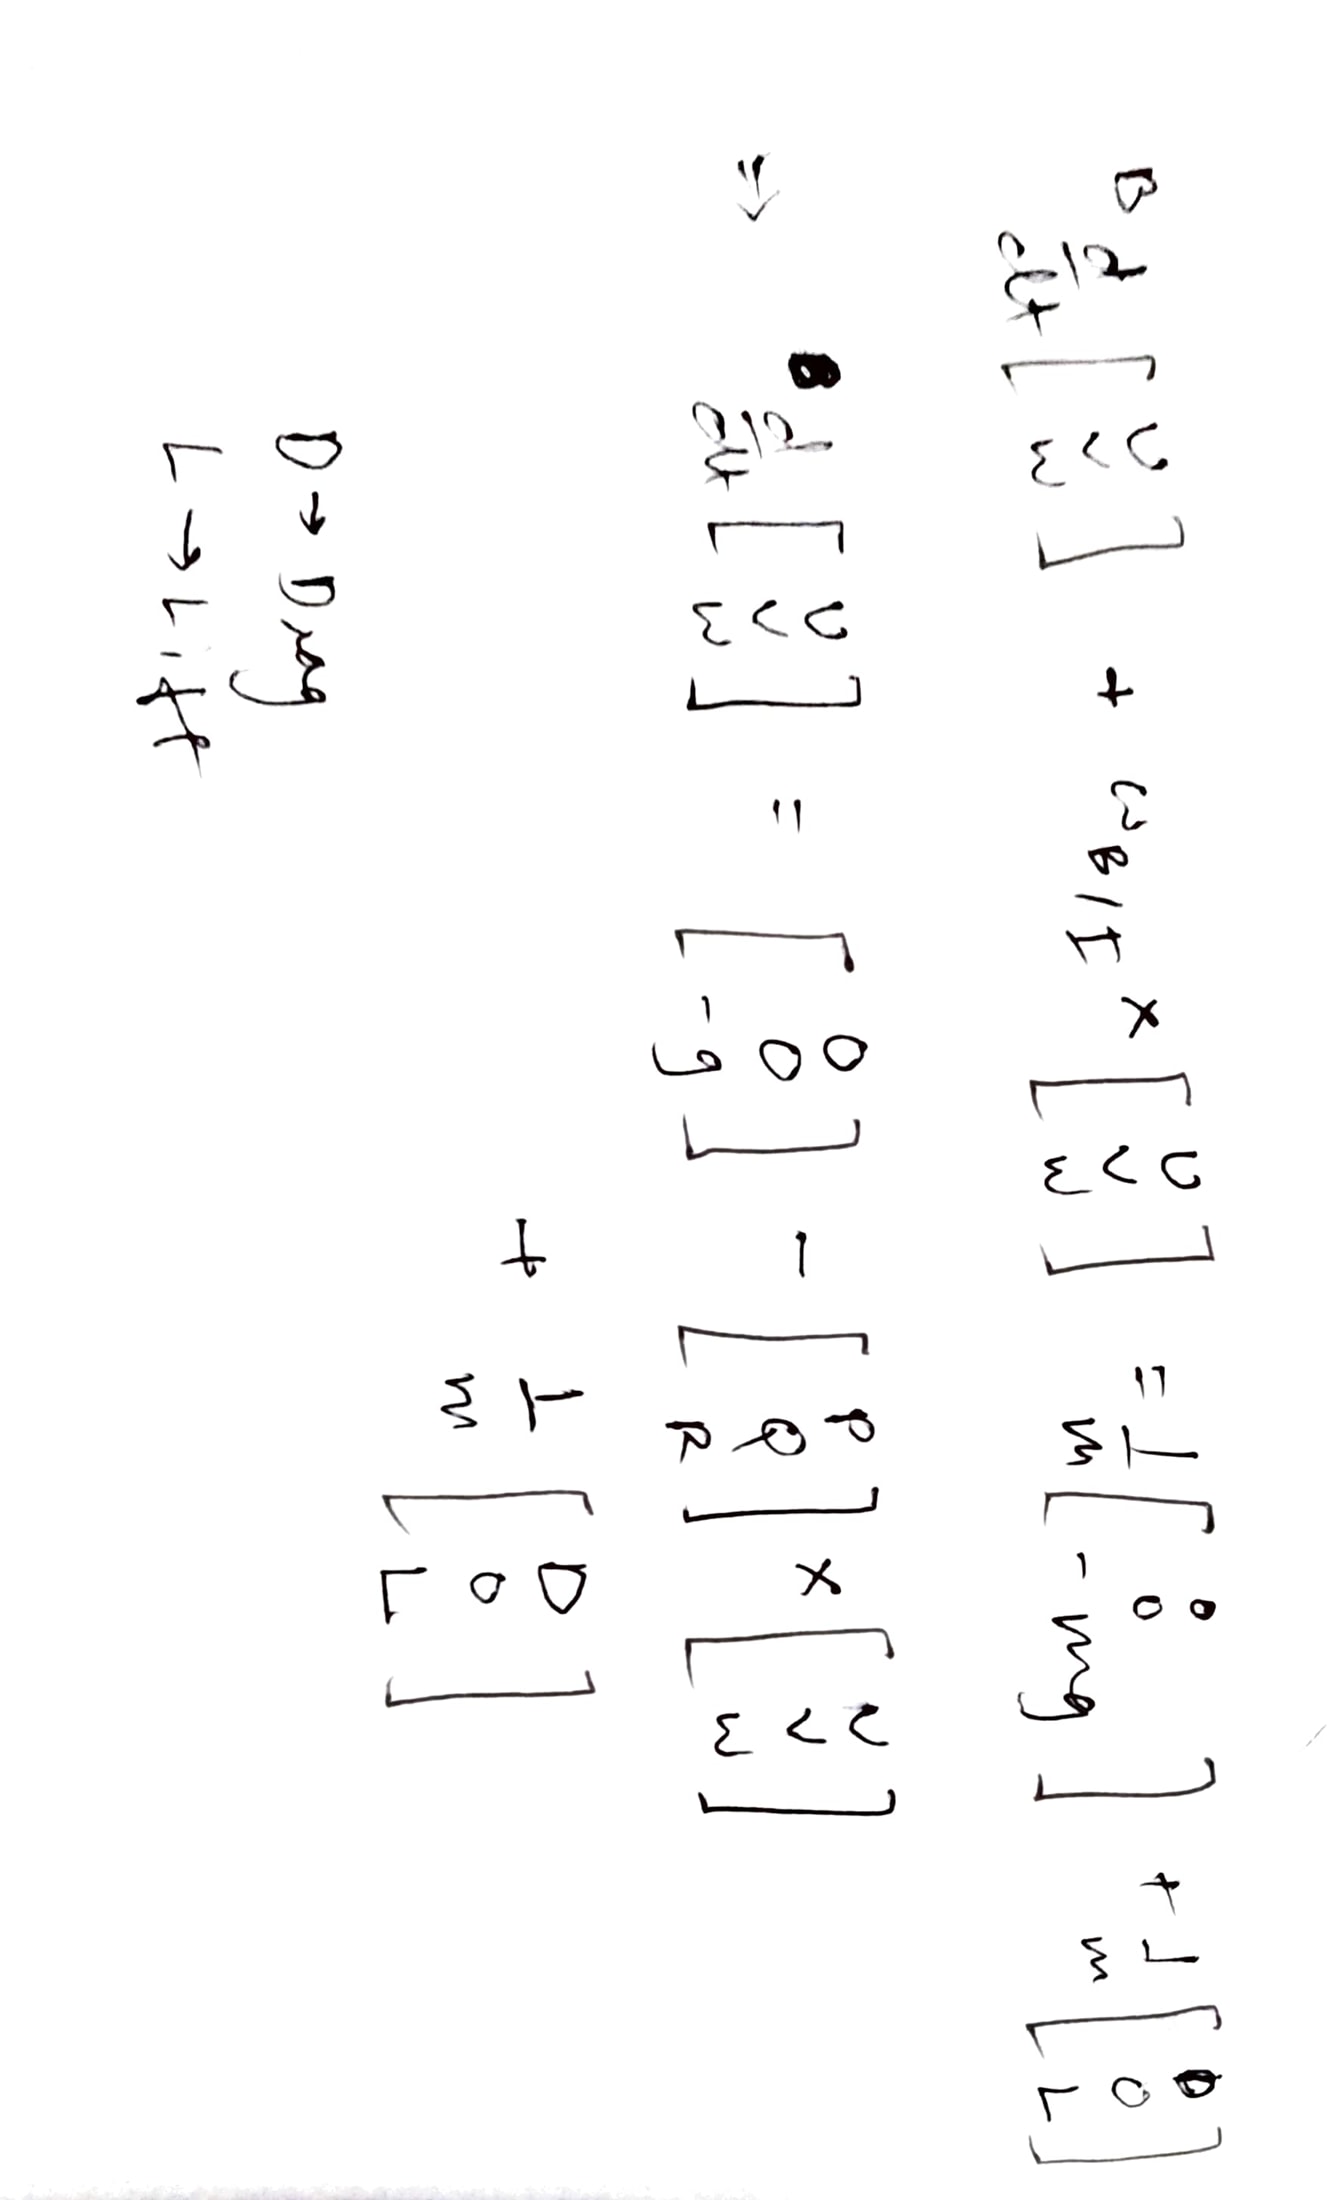 B d/dt [U V W] + ω B/I × [U V W] = 1/m [0 0 -mg] + 1/m [D 0 L]
⇒ B d/dt [U V W] = [0 0 -g] - [P Q R] × [U V W]
+ 1/m [D 0 L]
D → Drag
L → Lift